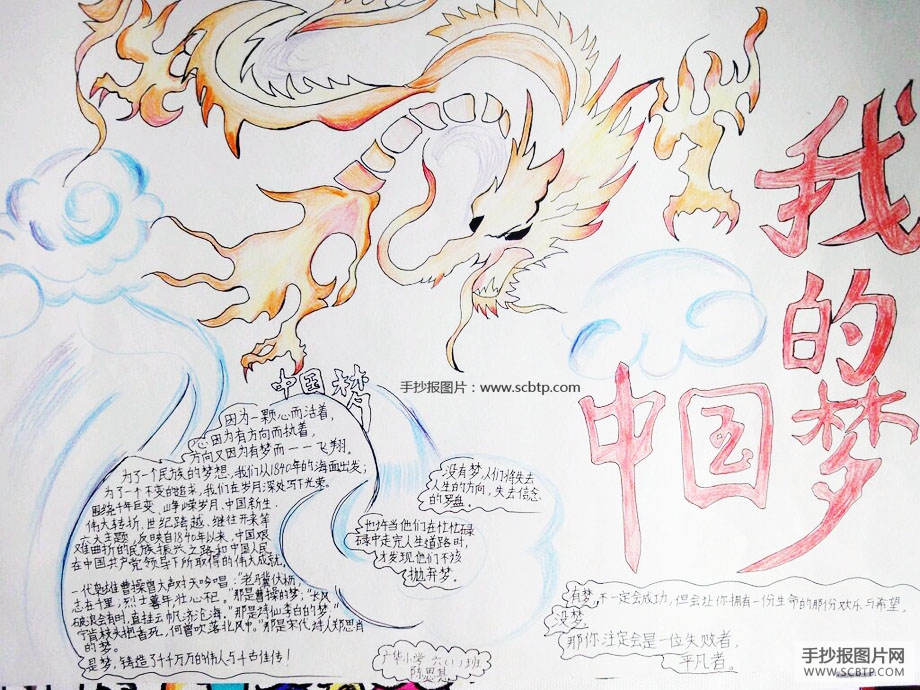 我的
中国梦
手抄报图片：www.scbtp.com
中国梦
因为一颗心而活着，
心因为有方向而执着，
方向又因为有梦而——飞翔。
为了一个民族的梦想，我们从1840年的海面出发；
为了一个不变的追求，我们在岁月深处写下光荣。
围绕千年巨变、峥嵘岁月、中国新生、
伟大转折、世纪跨越、继往开来等
六大主题，反映自1840年以来，中国艰
难曲折的民族振兴之路和中国人民
在中国共产党领导下所取得的伟大成就。
一代枭雄曹操曾大声对天吟唱："老骥伏枥，
志在千里，烈士暮年，壮心不已。"那是曹操的梦；"长风
破浪会有时，直挂云帆济沧海，"那是诗仙李白的梦。"
宁肯枝头抱香死，何曾吹落北风中。"那是宋代诗人郑思肖
的梦。
是梦，铸造了千千万万的伟人与千古佳传！
没有梦，人们将失去
人生的方向，失去信念
的罗盘。
也许当他们在忙忙碌
碌中走完人生道路时，
才发现他们不该
抛弃梦。
有梦，不一定会成功，但会让你拥有一份生命的那份欢乐与希望。
没梦，
那你注定会是一位失败者，
平凡者。
广华小学 六(1)班
陈思其
手抄报图片网
WWW.SCBTP.COM